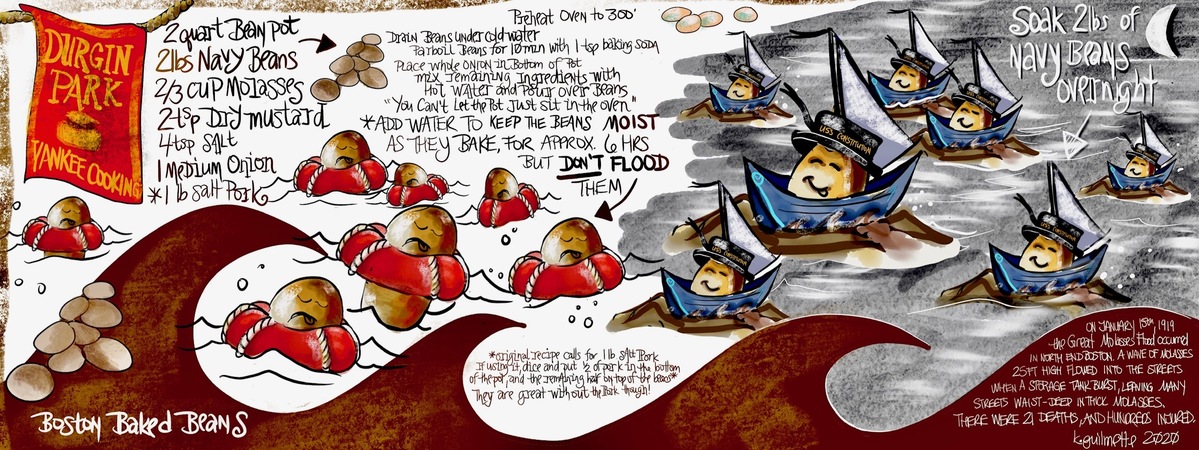 DURGIN
PARK
YANKEE COOKING
2 quart Bean pot
2lbs Navy Beans
2/3 cup Molasses
2 tsp Dry mustard
4 tsp Salt
1 Medium Onion
*1 lb Salt Pork
Preheat Oven to 300°
Drain Beans under cold water
Parboil Beans for 10 min with 1 tsp baking soda
Place whole onion in Bottom of Pot
mix remaining Ingredients with
Hot Water and Pour over Beans
"You Can't Let the Pot Just sit in the oven."
*ADD WATER TO KEEP THE BEANS MOIST
AS THEY BAKE, FOR APPROX. 6 HRS
BUT DON'T FLOOD
THEM
Soak 2lbs of
Navy Beans
overnight
USS CONSTITUTION
*original recipe calls for 1 lb Salt Pork
If using it, dice and put 1/2 of pork in the bottom
of the pot, and the remaining half on top of the beans*
They are great without the Pork though!
ON JANUARY 15th, 1919
the Great Molasses Flood occurred
IN NORTH END BOSTON. A WAVE OF MOLASSES
25 FT HIGH FLOWED INTO THE STREETS
WHEN A STORAGE TANK BURST, LEAVING MANY
STREETS WAIST-DEEP IN THICK MOLASSES.
THERE WERE 21 DEATHS, AND HUNDREDS INJURED.
k.guilmette 2020
Boston Baked Beans